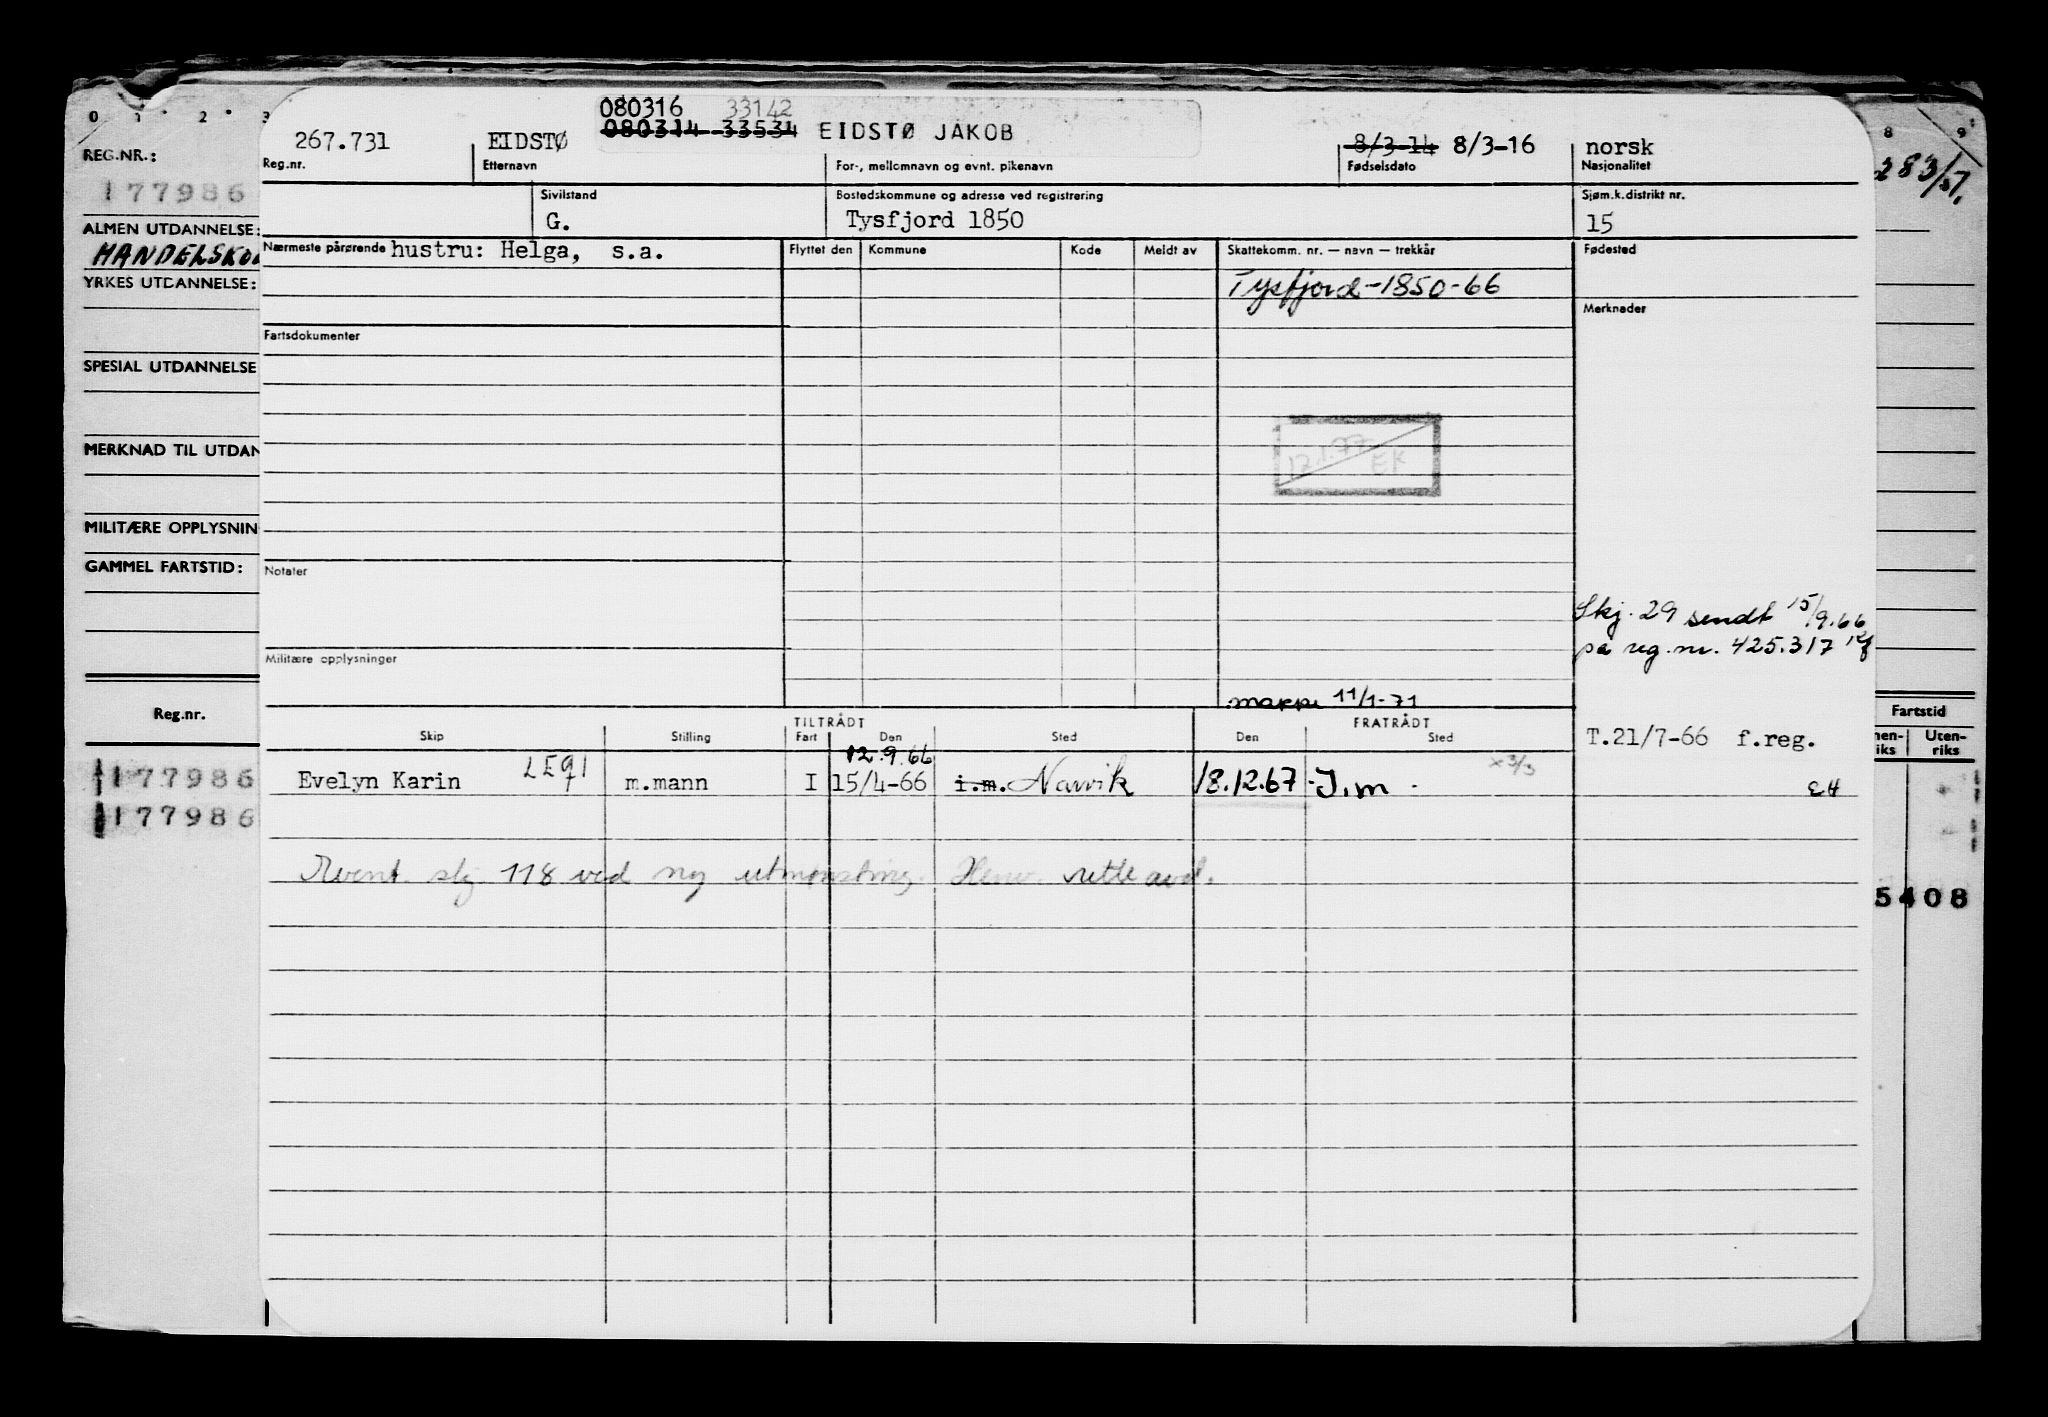 0 1 2 3
REG.NR.:
177986
ALMEN UTDANNELSE:
HANDELSKO
YRKES UTDANNELSE:
SPESIAL UTDANNELSE
MERKNAD TIL UTDAN
MILITÆRE OPPLYSNIN
GAMMEL FARTSTID:
Reg.nr.
177986
177986
080316 33142
267.731 EIDSTØ 080314 33534 EIDSTØ JAKOB 8/3-14 8/3-16 norsk
Reg.nr. Etternavn For-, mellomnavn og evnt. pikenavn Fødselsdato Nasjonalitet
Sivilstand Bostedskommune og adresse ved registrering Sjøm.k.distrikt nr.
G. Tysfjord 1850 15
Nærmeste pårørende hustru: Helga, s.a. Flyttet den Kommune Kode Meldt av Skattekomm. nr. — navn — trekkår Fødested
Tysfjord-1850-66
Merknader
Fartsdokumenter
12.1.77 EK
Notater
Skj. 29 sendt 15/9.66
på reg.nr. 425.317
Militære opplysninger
mappe 11/1-71
TILTRÅDT FRATRÅDT
Skip Stilling Fart Den Sted Den Sted
T.21/7-66 f.reg.
12.9.66
x 3/3
Evelyn Karin LEQI m.mann I 15/4-66 i.m. Narvik 18.12.67 J.m.
EH
Event. skj 118 ved ny utmønstring. Henv. rette avd.
8 9
283/57.
Fartstid
nen-
iks
Uten-
riks
5408